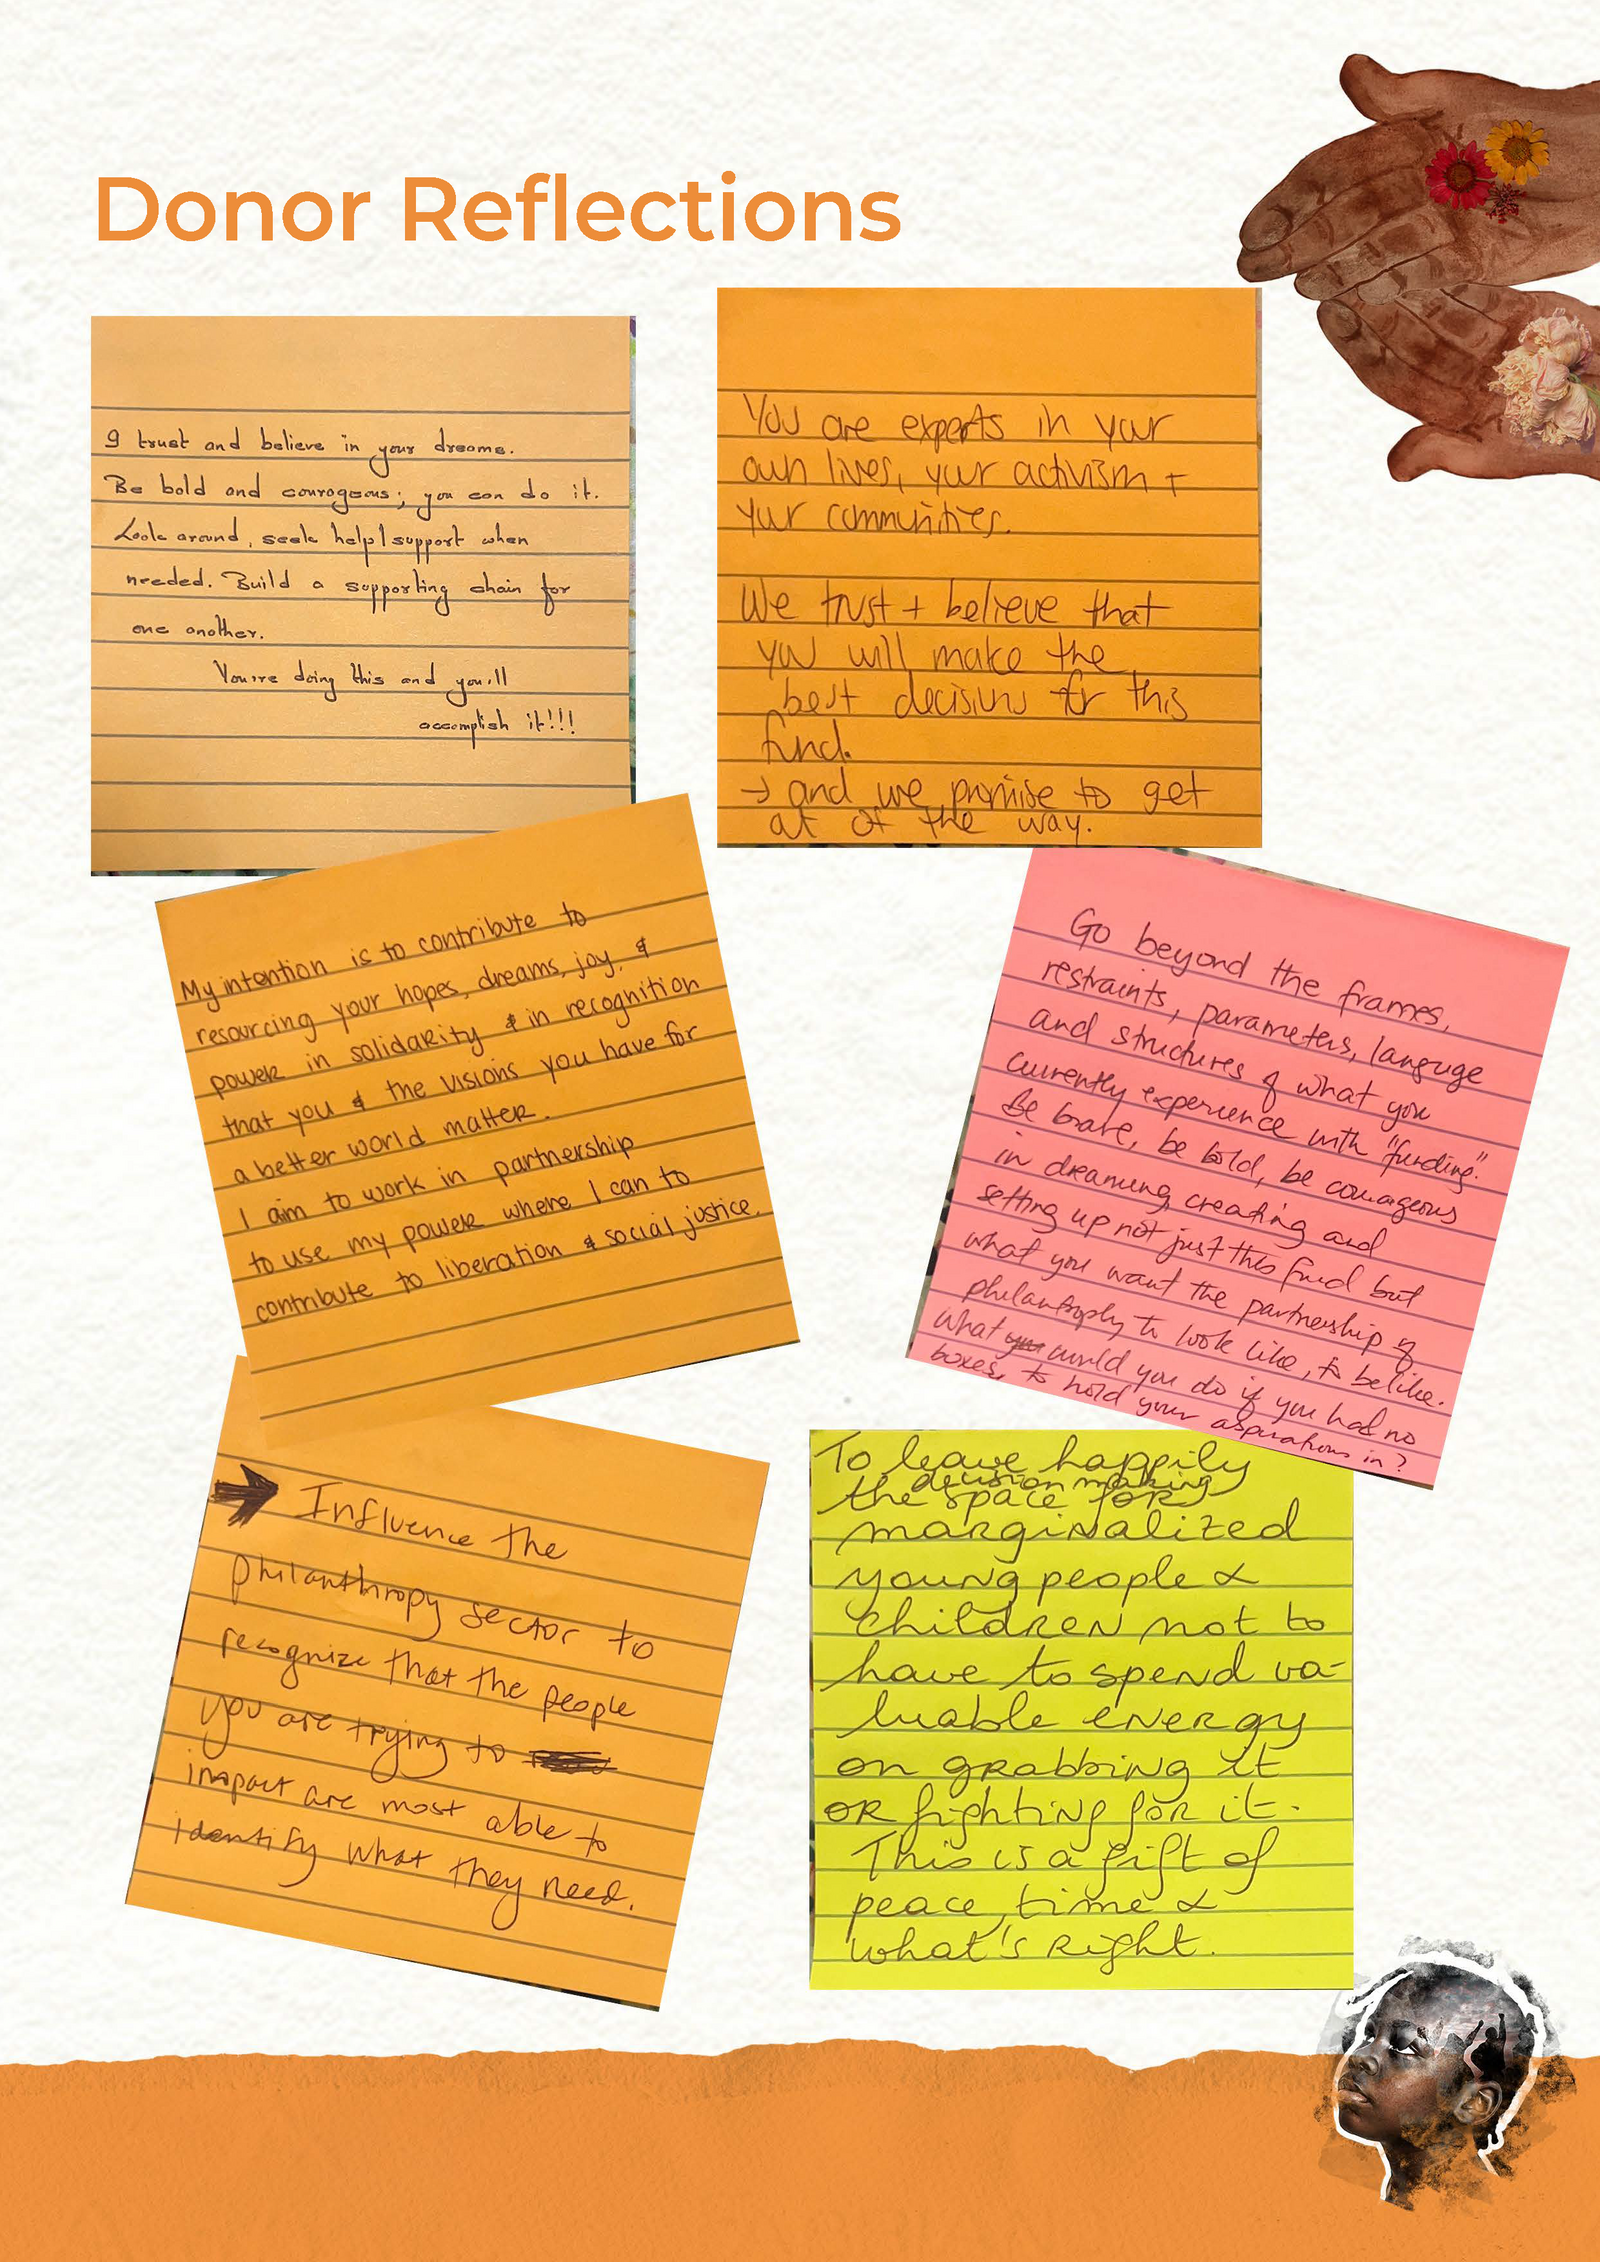 Donor Reflections
I trust and believe in your dreams.
Be bold and courageous; you can do it.
Look around, seek help/support when
needed. Build a supporting chain for
one another.
You're doing this and you'll
accomplish it!!!
You are experts in your
own lives, your activism +
your communities.
We trust + believe that
you will make the
best decisions for this
fund.
→ and we promise to get
out of the way.
My intention is to contribute to
resourcing your hopes, dreams, joy, &
power in solidarity & in recognition
that you & the visions you have for
a better world matter.
I aim to work in partnership
to use my power where I can to
contribute to liberation & social justice.
Go beyond the frames,
restraints, parameters, language
and structures of what you
currently experience with "funding".
Be brave, be bold, be courageous
in dreaming, creating and
setting up not just this fund but
what you want the partnership of
philanthropy to look like, to be like.
What would you do if you had no
boxes, to hold your aspirations in?
➔ Influence the
philanthropy sector to
recognize that the people
you are trying to
impact are most able to
identify what they need.
To leave happily
the decision making
space for
marginalized
young people &
children not to
have to spend va-
luable energy
on grabbing it
or fighting for it.
This is a gift of
peace, time &
what's right.